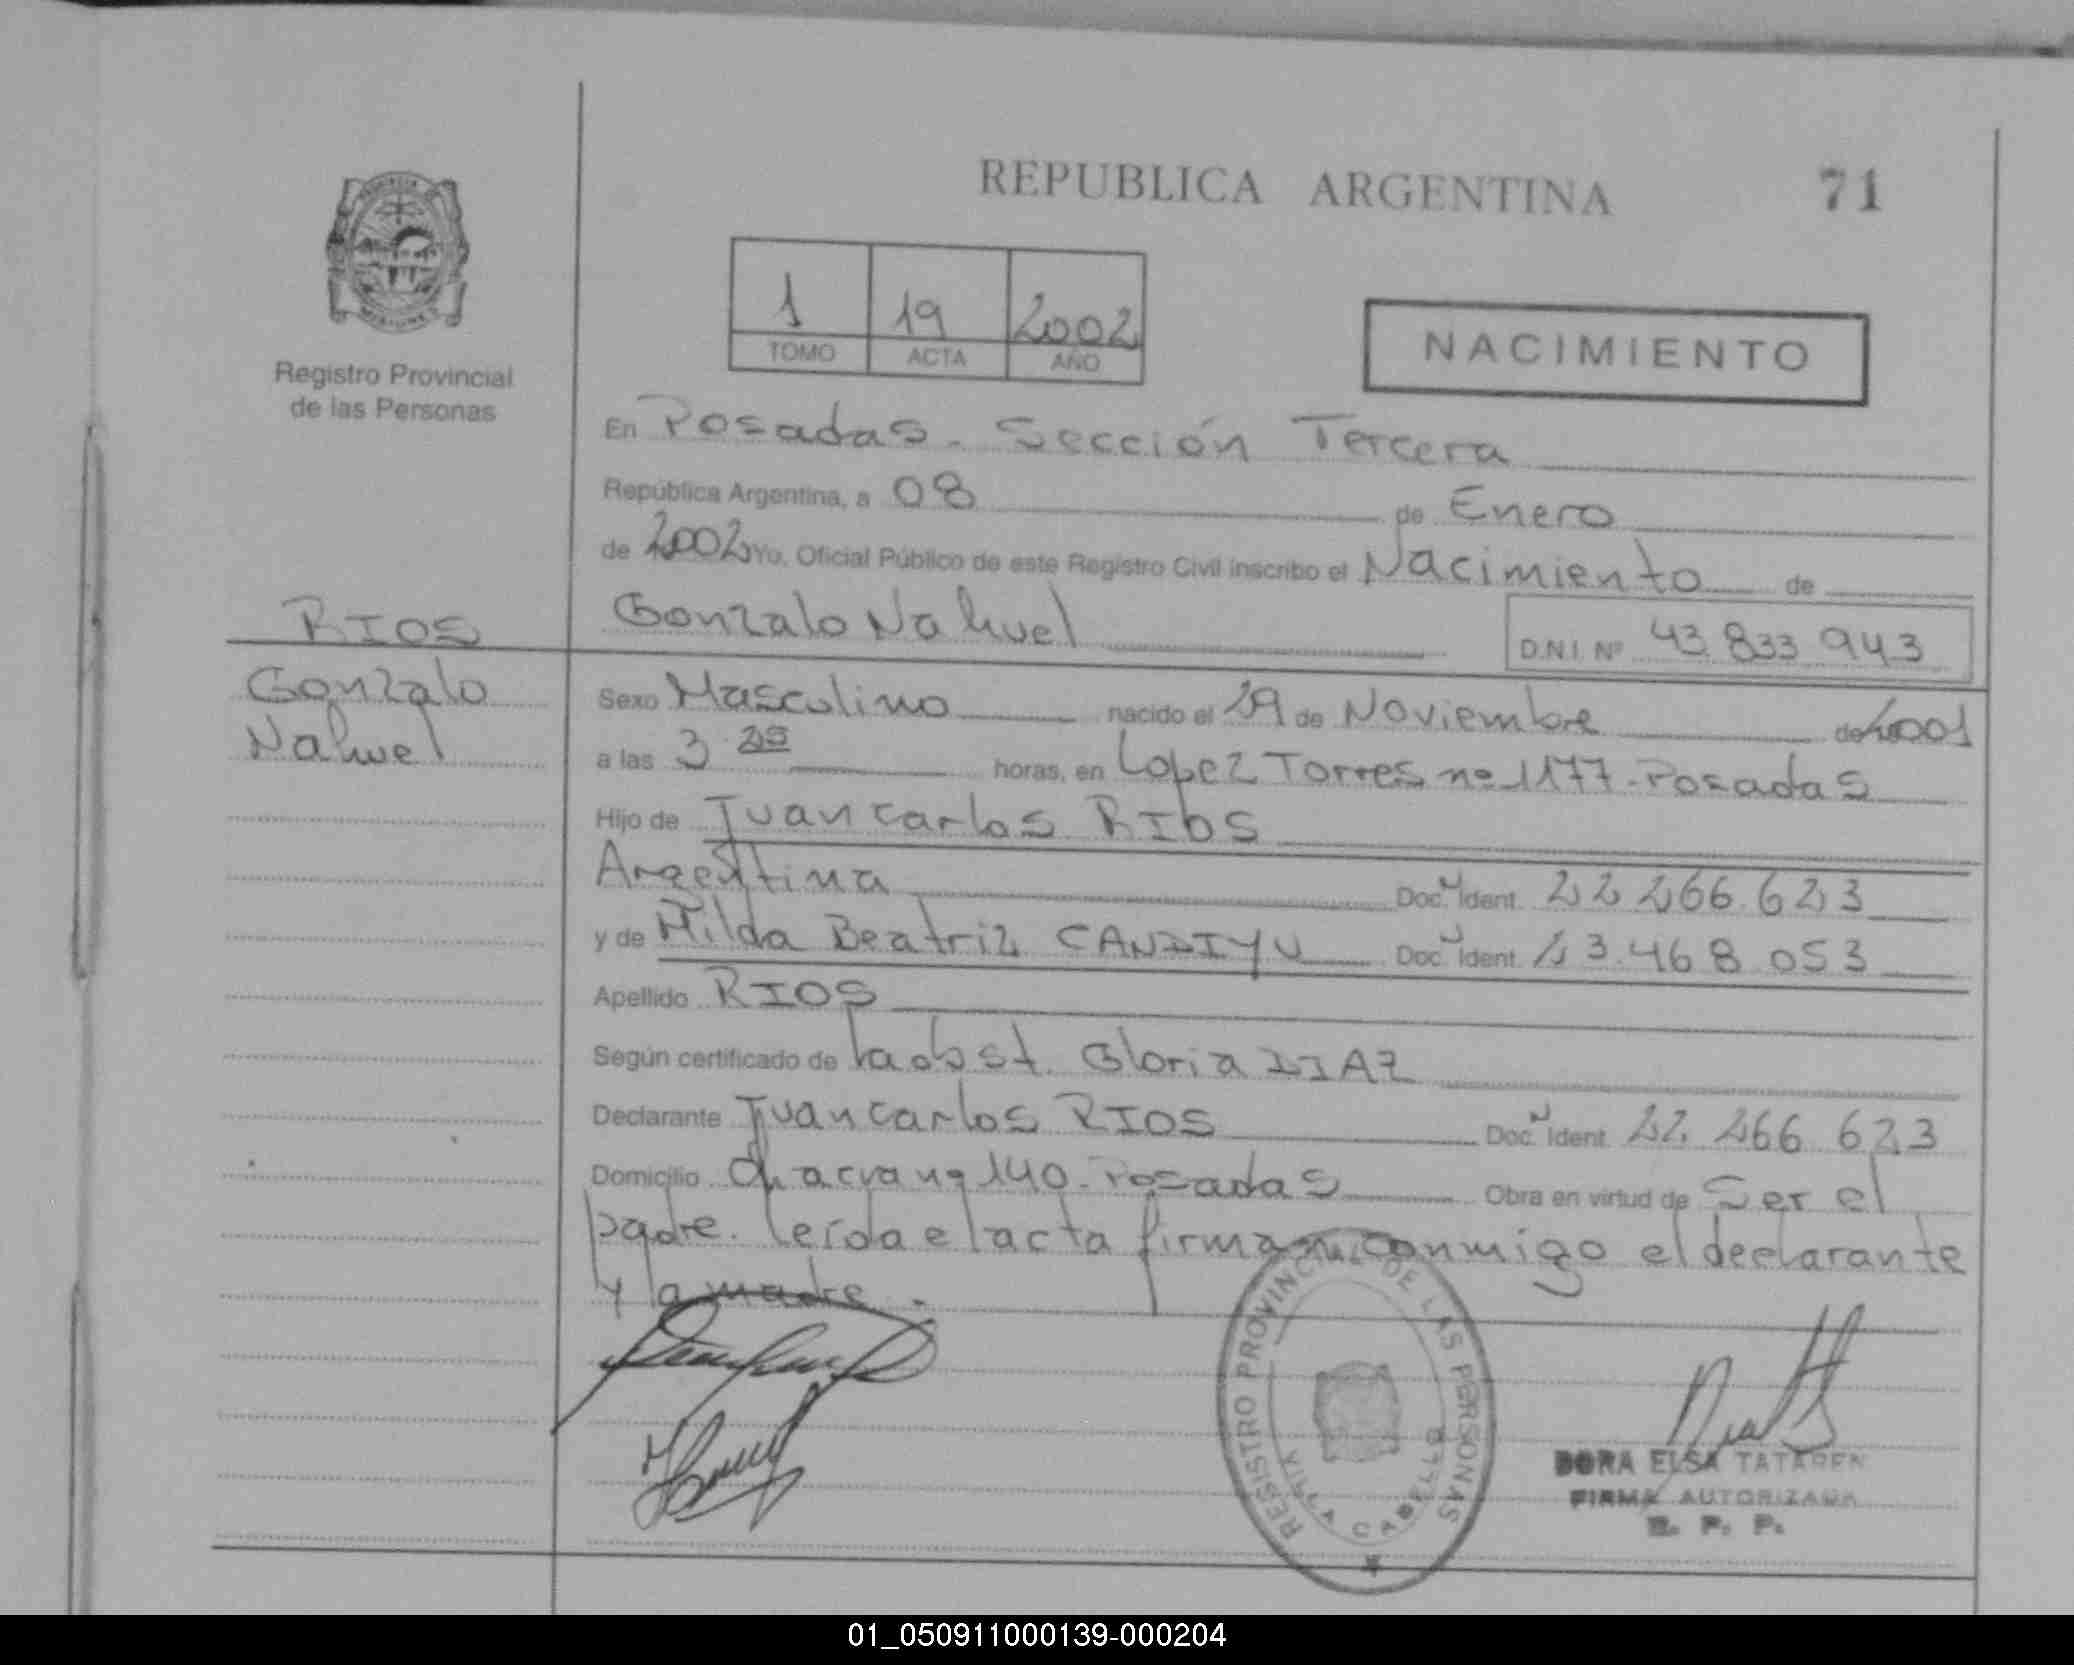 REPUBLICA ARGENTINA
71
Registro Provincial
de las Personas
1 19 2002
TOMO ACTA AÑO
NACIMIENTO
En Posadas - Sección Tercera
República Argentina, a 08 de Enero
de 2002 Yo, Oficial Público de este Registro Civil inscribo el Nacimiento de
RIOS
Gonzalo Nahuel
D.N.I. Nº 43 833 943
Gonzalo
Nahuel
Sexo Masculino nacido el 29 de Noviembre de 2001
a las 3 horas, en Lopez Torres nº 1177 - Posadas
Hijo de Juan Carlos RIOS
Argentina Doc. Ident. 22 266 623
y de Hilda Beatriz CANDIYU Doc. Ident. 23.468 053
Apellido RIOS
Según certificado de la obst. Gloria DIAZ
Declarante Juan Carlos RIOS Doc. Ident. 22. 266 623
Domicilio 140 - Posadas Obra en virtud de Ser el
padre. Leída el acta firman conmigo el declarante
y la madre.
REGISTRO PROVINCIAL DE LAS PERSONAS
VILLA CABELLO
DORA ELSA TATAREN
FIRMA AUTORIZADA
R. P. P.
01_050911000139-000204